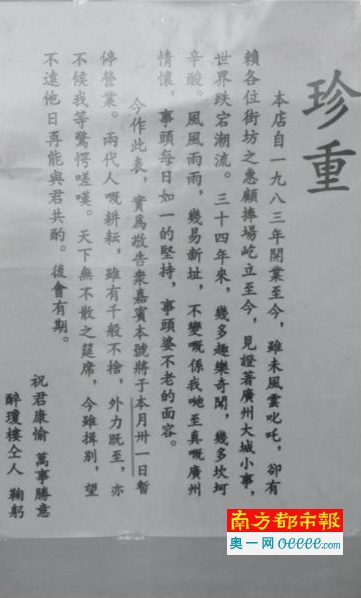 珍重
本店自一九八三年開業至今，雖未風雲叱吒，卻有
賴各位街坊之惠顧捧場屹立至今，見證著廣州大城小事，
世界跌宕潮流。三十四年來，幾多趣樂奇聞，幾多坎坷
辛酸。風風雨雨，幾易新址，不變嘅係我哋至真嘅廣州
情懷，事頭每日如一的堅持，事頭婆不老的面容。
今作此表，實為敬告眾嘉賓本號將于本月卅一日暫
停營業。兩代人嘅耕耘，雖有千般不捨，外力既至，亦
不候我等驚愕嗟嘆。天下無不散之筵席，今雖揖別，望
不遠他日再能與君共酌。後會有期。
祝君康愉 萬事勝意
醉瓊樓仝人 鞠躬
南方都市報
奧一网 oeeee.com